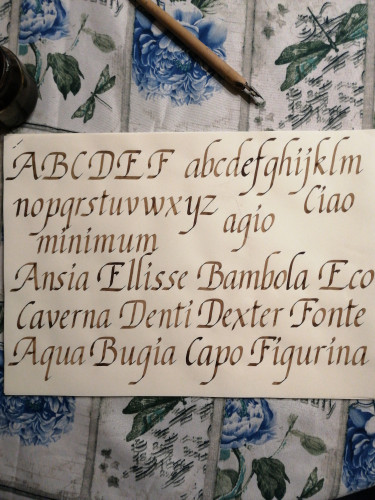 ABCDEF abcdefghijklm
nopqrstuvwxyz agio Ciao
minimum
Ansia Ellisse Bambola Eco
Caverna Denti Dexter Fonte
Aqua Bugia Capo Figurina